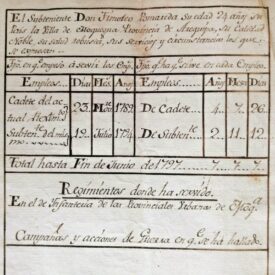 El Subteniente Don Timoteo Bynanda su edad 24 años su
Pais la Villa de Moquegua, Provincia de Arequipa, su Calidad
Noble, su salud robusta, sus servicios y circunstancias los que
se expresan
Tpo. en q.e empezó a servir los Emp.s Tpo. q.e ha q.e sirve en cada Empleo
Empleos Dias Mes. Año Empleos A. M. Dias
Cadete del ac 23 Nov.re 1789 De Cadete 4 7 26
tual Regim.to
Subten.te del mis 12 Julio 1794 De Subten.te 2 11 12
mo
Total hasta Fin de Junio de 1797 7 7 7
Regimientos donde ha servido.
En el de Infanteria de los Provinciales Urbanos de Moq.a
Campañas y acciones de Guerra en q.e se ha hallado.